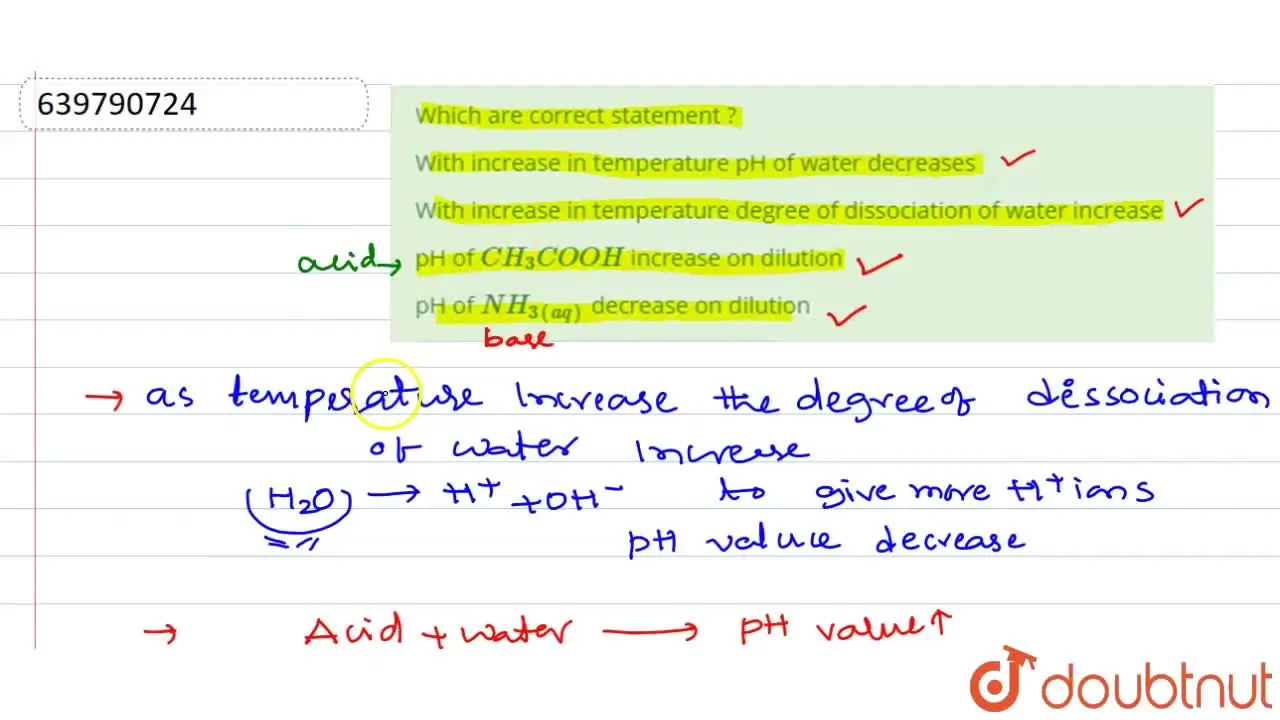 639790724
Which are correct statement ?
With increase in temperature pH of water decreases
With increase in temperature degree of dissociation of water increase
acid → pH of CH₃COOH increase on dilution
pH of NH₃₍aq₎ decrease on dilution
base
→ as temperature Increase the degree of dissociation
of water Increase
(H₂O) → H⁺ + OH⁻ to give more H⁺ ions
pH value decrease
→ Acid + water → pH value ↑
doubtnut